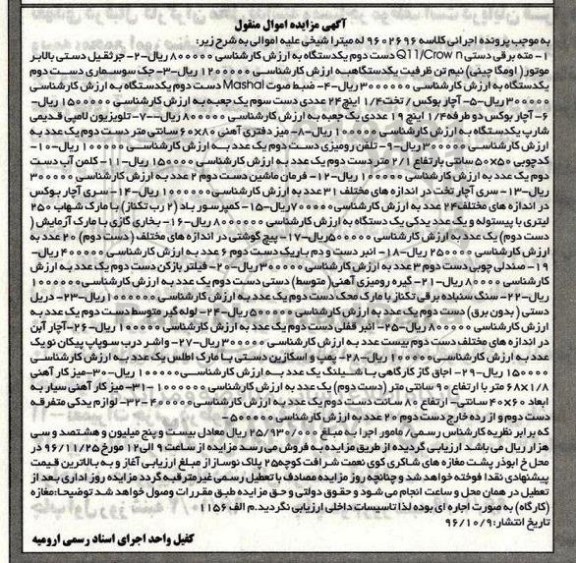 آگهی مزایده اموال منقول
به موجب پرونده اجرائی کلاسه ۹۶۰۲۶۹۶ له میترا شیخی علیه اموالی به شرح زیر:
۱- مته برقی دستی Q11/Crow n دست دوم یکدستگاه به ارزش کارشناسی ۸۰۰۰۰۰ ریال-۲- جرثقیل دستی بالابر
موتور( اومگا چینی) نیم تن ظرفیت یکدستگاهبه ارزش کارشناسی ۱۲۰۰۰۰۰ ریال-۳- جک سوسماری دست دوم
یکدستگاه به ارزش کارشناسی ۳۰۰۰۰۰ ریال-۴- ضبط صوت Mashal دست دوم یکدستگاه به ارزش کارشناسی
۳۰۰۰۰۰ ریال-۵- آچار بوکس / تخت ۱/۴ اینچ ۲۴ عددی دست سوم یک جعبه به ارزش کارشناسی ۱۵۰۰۰۰۰ ریال-
۶- آچار بوکس دو طرفه ۱/۴ اینچ ۱۹ عددی یک جعبه به ارزش کارشناسی ۸۰۰۰۰۰ ریال-۷- تلویزیون لامپی قدیمی
شارپ یکدستگاه به ارزش کارشناسی ۱۰۰۰۰۰ ریال-۸- میز دفتری آهنی ۸۰×۶۰ سانتی متر دست دوم یک عدد به
ارزش کارشناسی ۳۰۰۰۰۰ ریال-۹- تلفن رومیزی دست دوم یک عدد به ارزش کارشناسی ۱۰۰۰۰۰ ریال-۱۰-
کدچوبی ۵۰×۵۰ سانتی بارتفاع ۲/۱ متر دست دوم یک عدد به ارزش کارشناسی ۱۵۰۰۰۰ ریال-۱۱- کلمن آب دست
دوم یک عدد به ارزش کارشناسی ۱۰۰۰۰۰ ریال-۱۲- فرمان ماشین دست دوم ۲ عدد به ارزش کارشناسی ۳۰۰۰۰۰
ریال-۱۳- سری آچار تخت در اندازه های مختلف ۳۱ عدد به ارزش کارشناسی ۱۰۰۰۰۰۰ ریال-۱۴- سری آچار بوکس
در اندازه های مختلف ۲۴ عدد به ارزش کارشناسی ۷۰۰۰۰۰ ریال-۱۵- کمپرسور باد (۲ رب تکناز) با مارک شهاب ۲۵۰
لیتری با پیستوله و یک عدد یدکی یک دستگاه به ارزش کارشناسی ۸۰۰۰۰۰۰ ریال-۱۶- بخاری گازی با مارک آزمایش (
دست دوم) یک عدد به ارزش کارشناسی ۵۰۰۰۰۰ ریال-۱۷- پیچ گوشتی در اندازه های مختلف (دست دوم) ۲۰ عدد به
ارزش کارشناسی ۲۵۰۰۰۰ ریال-۱۸- انبر دست و دم باریک دست دوم ۶ عدد به ارزش کارشناسی ۴۰۰۰۰۰ ریال-
۱۹- صندلی چوبی دست دوم ۳ عدد به ارزش کارشناسی ۳۰۰۰۰۰ ریال-۲۰- فیلتر بازکن دست دوم یک عدد به ارزش
کارشناسی ۸۰۰۰۰ ریال-۲۱- گیره رومیزی آهنی( متوسط) دستی دست دوم یک عدد به ارزش کارشناسی ۱۰۰۰۰۰۰
ریال-۲۲- سنگ سنباده برقی تکناز با مارک محک دست دوم یک عدد به ارزش کارشناسی ۱۰۰۰۰۰۰ ریال-۲۳- دریل
دستی ( بدون برق) دست دوم یک عدد به ارزش کارشناسی ۵۰۰۰۰۰ ریال-۲۴- لوله گیر متوسط دست دوم یک عدد به
ارزش کارشناسی ۸۰۰۰۰۰ ریال-۲۵- انبر قفلی دست دوم یک عدد به ارزش کارشناسی ۱۰۰۰۰۰ ریال-۲۶- آچار آلن
در اندازه های مختلف دست دوم بیست عدد به ارزش کارشناسی ۳۰۰۰۰۰ ریال-۲۷- واشر درب سوپاپ پیکان نو یک
عدد به ارزش کارشناسی ۱۰۰۰۰۰ ریال-۲۸- پمپ و اسکازین دستی با مارک اطلس یک عدد به ارزش کارشناسی
۱۵۰۰۰۰ ریال-۲۹- اجاق گاز کارگاهی با شیلنگ یک عدد به ارزش کارشناسی ۱۰۰۰۰۰ ریال-۳۰- میز کار آهنی
۶۸×۱/۸ متر با ارتفاع ۹۰ سانتی متر (دست دوم) یک عدد به ارزش کارشناسی ۱۰۰۰۰۰۰-۳۱- میز کار آهنی سیار به
ابعاد ۶۰×۴۰ سانتی- ارتفاع ۸۰ سانت دست دوم یک عدد به ارزش کارشناسی ۴۰۰۰۰۰-۳۲- لوازم یدکی متفرقه
دست دوم و از رده خارج دست دوم ۲۰ عدد به ارزش کارشناسی ۵۰۰۰۰۰-
که برابر نظریه کارشناس رسمی/ مامور اجرا به مبلغ ۲۵/۹۳۰/۰۰۰ ریال معادل بیست و پنج میلیون و هشتصد و سی
هزار ریال می باشد ارزیابی گردیده از طریق مزایده به فروش می رسد مزایده از ساعت ۹ الی ۱۲ مورخ ۹۶/۱۱/۲۵ در
محل خ ابوذر پشت مغازه های شاکری کوی نعمت شرافت کوچه ۲۵ پلاک نوساز از مبلغ ارزیابی آغاز و به بالاترین قیمت
پیشنهادی نقدا فوخته خواهد شد و چنانچه روز مزایده مصادف با تعطیل رسمی غیرمترقبه گردد مزایده روز اداری بعد از
تعطیل در همان محل و ساعت انجام می شود و حقوق دولتی و حق مزایده طبق مقررات وصول خواهد شد توضیحا:مغازه
(کارگاه) به صورت اجاره ای بوده لذا تاسیسات داخلی ارزیابی نگردید.م الف ۱۱۵۶
تاریخ انتشار:۹۶/۱۰/۹
کفیل واحد اجرای اسناد رسمی ارومیه